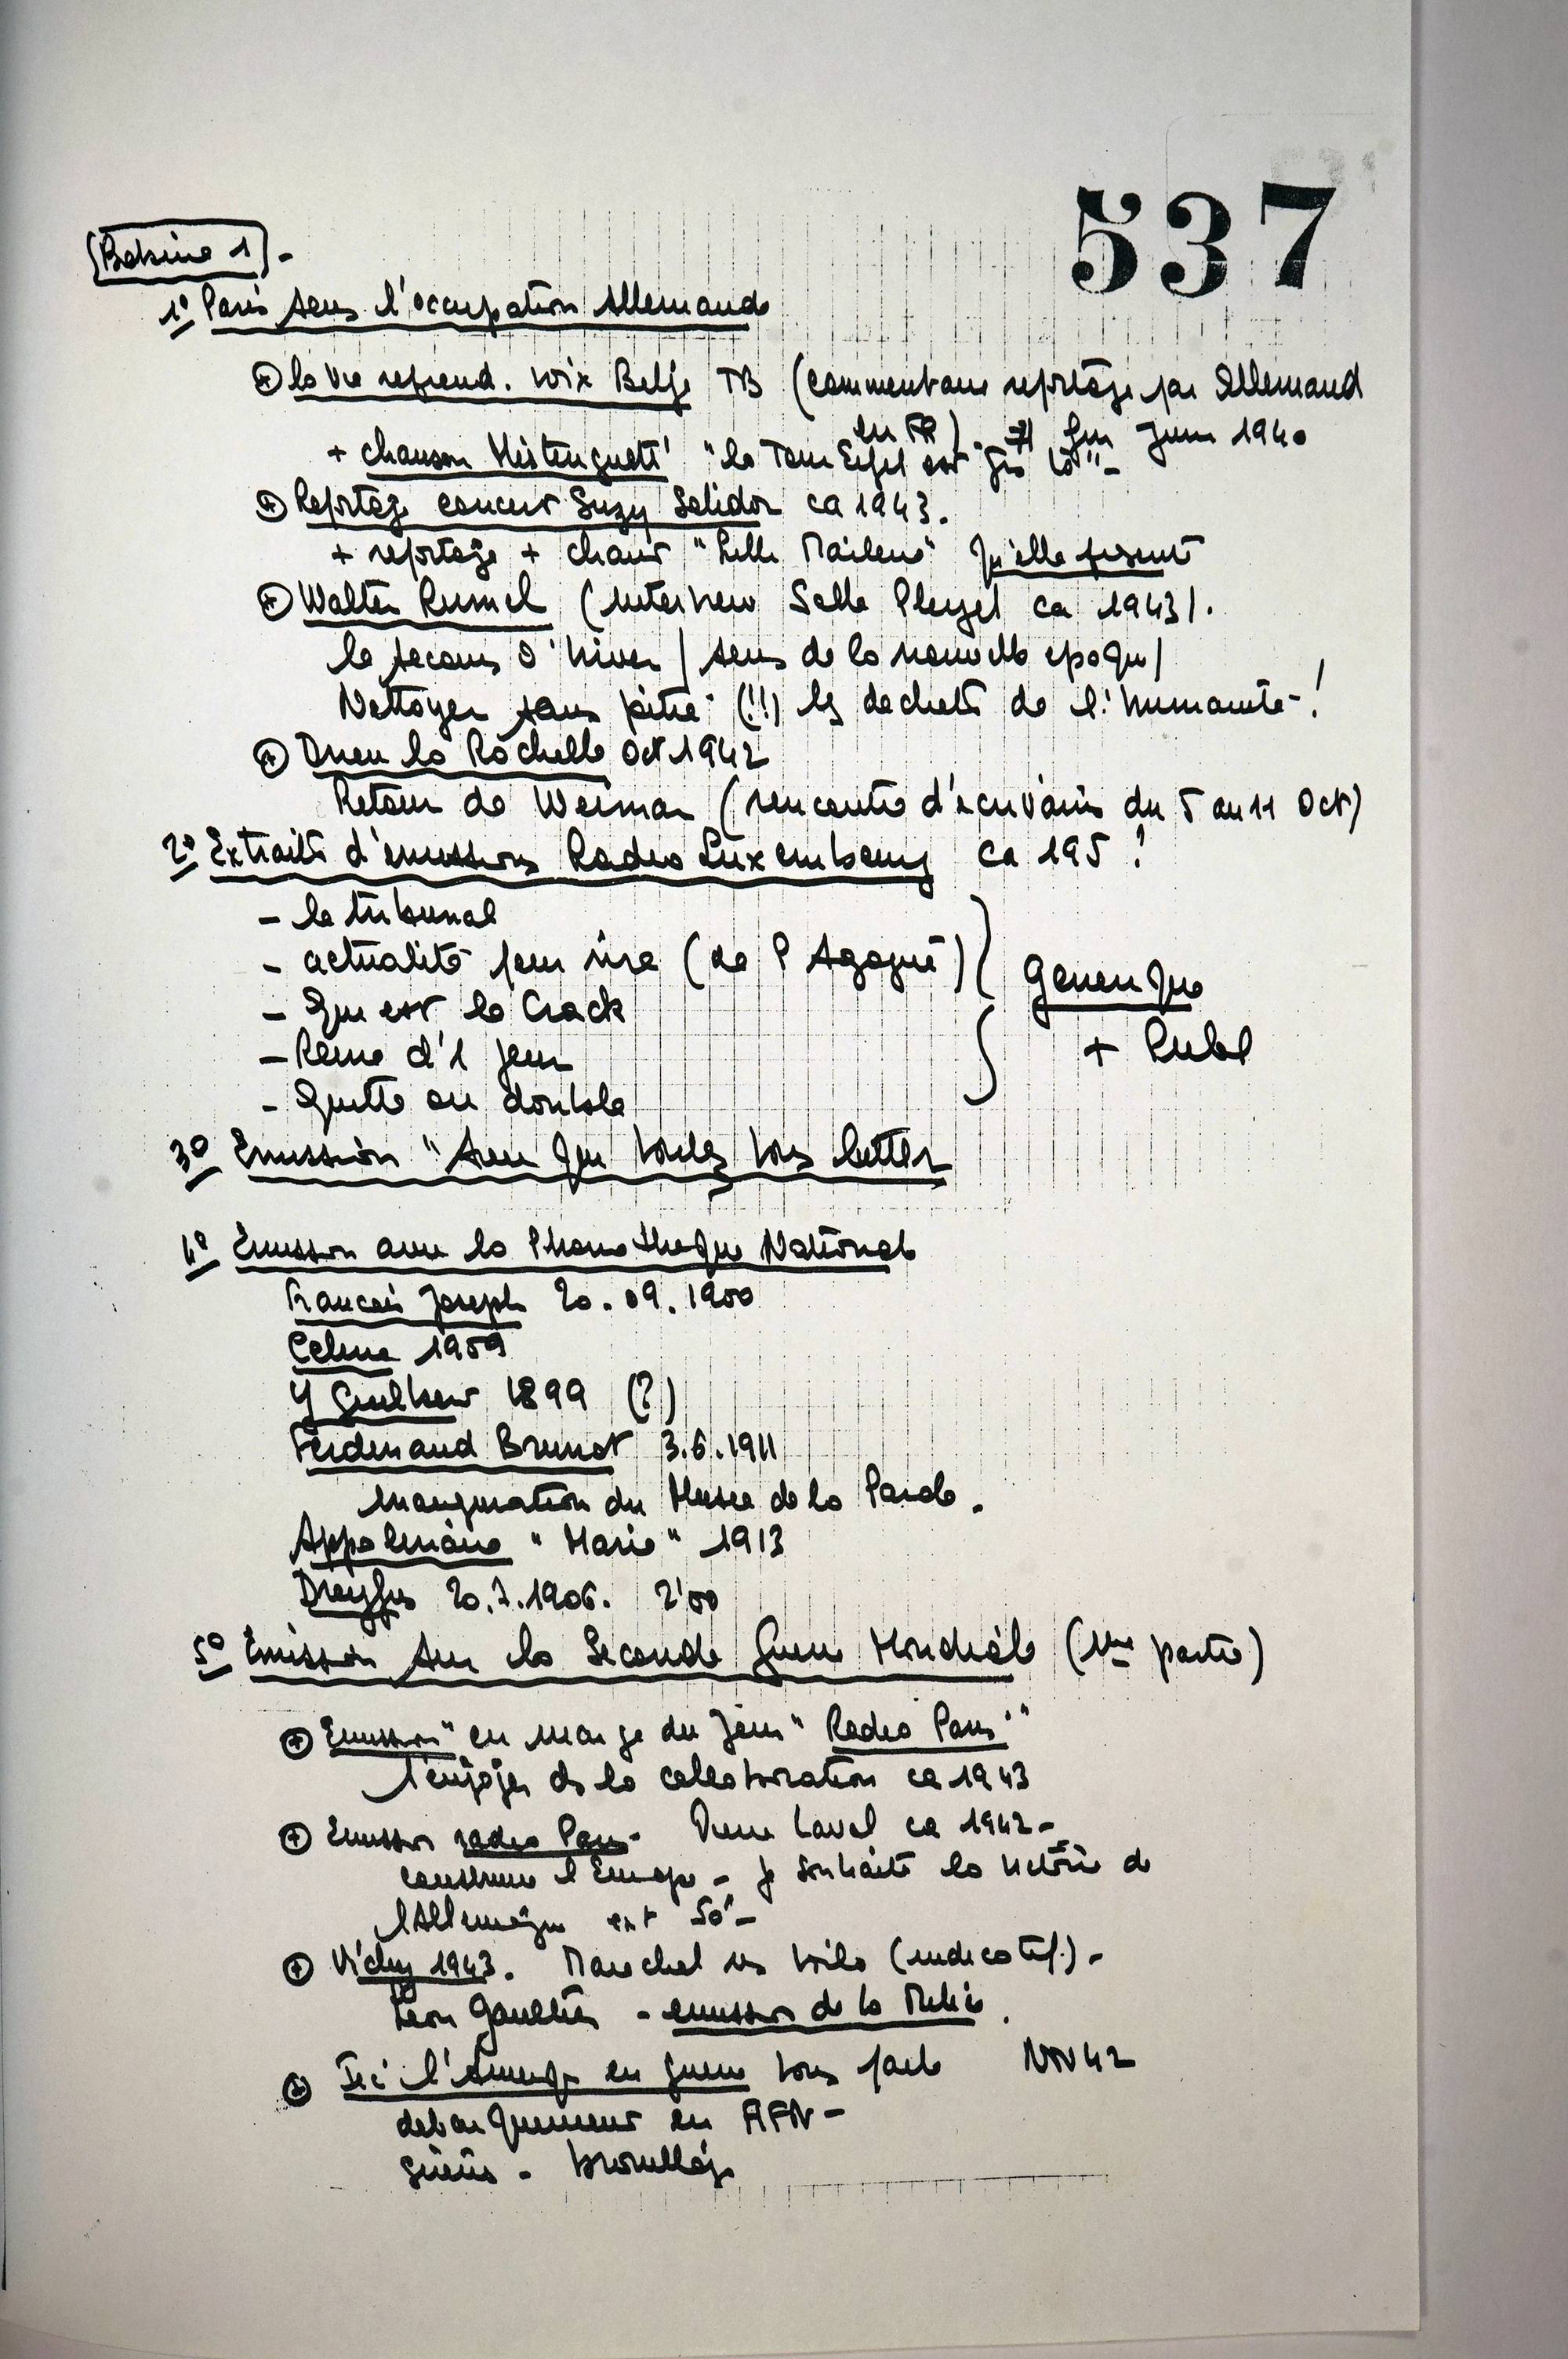 537
Bobine 1 -
1° Paris sous l'occupation Allemande
⊕ la vie reprend. voix Belge TB (commentaire reportage par Allemand
en FR). fin Juin 1940
+ chanson Mistenguett "la Tour Eiffel est tjrs là" -
⊕ Reportage concert Suzy Solidor ca 1943.
+ reportage + chant "Lilli Marlene" qu'elle présente
⊕ Walter Rumel (interview Salle Pleyel ca 1943).
le secours d'hiver / sens de la nouvelle epoque /
Nettoyer sans pitié (!!) les dechets de l'humanité - !
⊕ Drieu la Rochelle Oct 1942
Retour de Weimar (rencontre d'écrivains du 5 au 11 Oct)
2° Extraits d'emissions Radio Luxembourg ca 195 ?
- le tribunal
- actualité pour rire (de P Agogué)
- Qui est le Crack
- Reine d'1 jour
- Quitte ou double
Generique
+ Publ
3° Emission "Avec qui voulez vous lutter
4° Emission avec la Phonotheque Nationale
Francois Joseph 20.09.1900
Celine 1959
Y Guilbert 1899 (?)
Ferdinand Brunot 3.6.1911
inauguration du Musée de la Parole.
Appolinaire "Marie" 1913
Dreyfus 20.7.1906. 2'00
5° Emission sur la Seconde Guerre Mondiale (1ère partie)
⊕ Emission "en marge du Jeu" Radio Paris"
de la collaboration ca 1943
⊕ Emission radio Paris. Pierre Laval ca 1942 -
construire l'Europe - je souhaite la victoire de
l'Allemagne ext 50" -
⊕ Vichy 1943. Marechal ns voilà (indicatif.) -
Léon Gaultier - emission de la Milice.
⊕ Ici l'Amerique en guerre vous parle NOV 42
debarquement en AFN -
brouillage